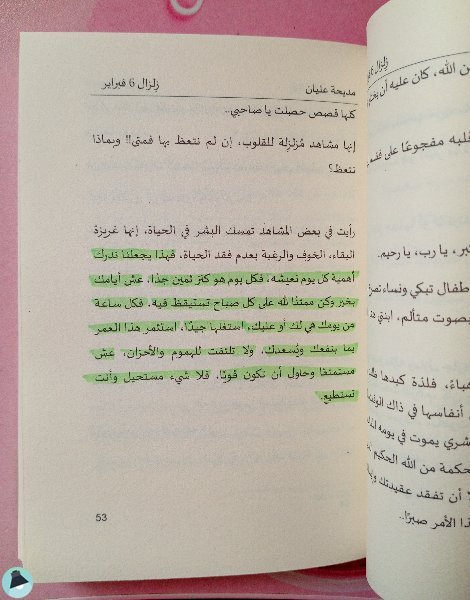 مديحة عليان
زلزال 6 فبراير
كلها قصص حصلت يا صاحبي..
إنها مشاهد مُزلزِلة للقلوب، إن لم نتعظ بها فمتى!! وبماذا
نتعظ؟
رأيت في بعض المشاهد تمسك البشر في الحياة، إنها غريزة
البقاء، الخوف والرغبة بعدم فقد الحياة، فهذا يجعلنا ندرك
أهمية كل يوم نعيشه، فكل يوم هو كنز ثمين جدًا. عش أيامك
بخير وكن ممتنا لله على كل صباح تستيقظ فيه. فكل ساعة
من يومك هي لك أو عليك، استغلها جيدًا. استثمر هذا العمر
بما ينفعك ويُسعدك، ولا تلتفت للهموم والأحزان. عش
مستمتعًا وحاول أن تكون قويًا. فلا شيء مستحيل وأنت
تستطيع.
53
زلزال 6
من الله، كان عليه أن
قلبه مفجوعًا على
يا رب، يا رحيم.
أطفال تبكي ونساء
بصوت متألم،
فلذة كبدها
أنفاسها في ذاك
يموت في يومه
حكمة من الله الحكيم
أن تفقد عقيدتك
هذا الأمر صبرًا..